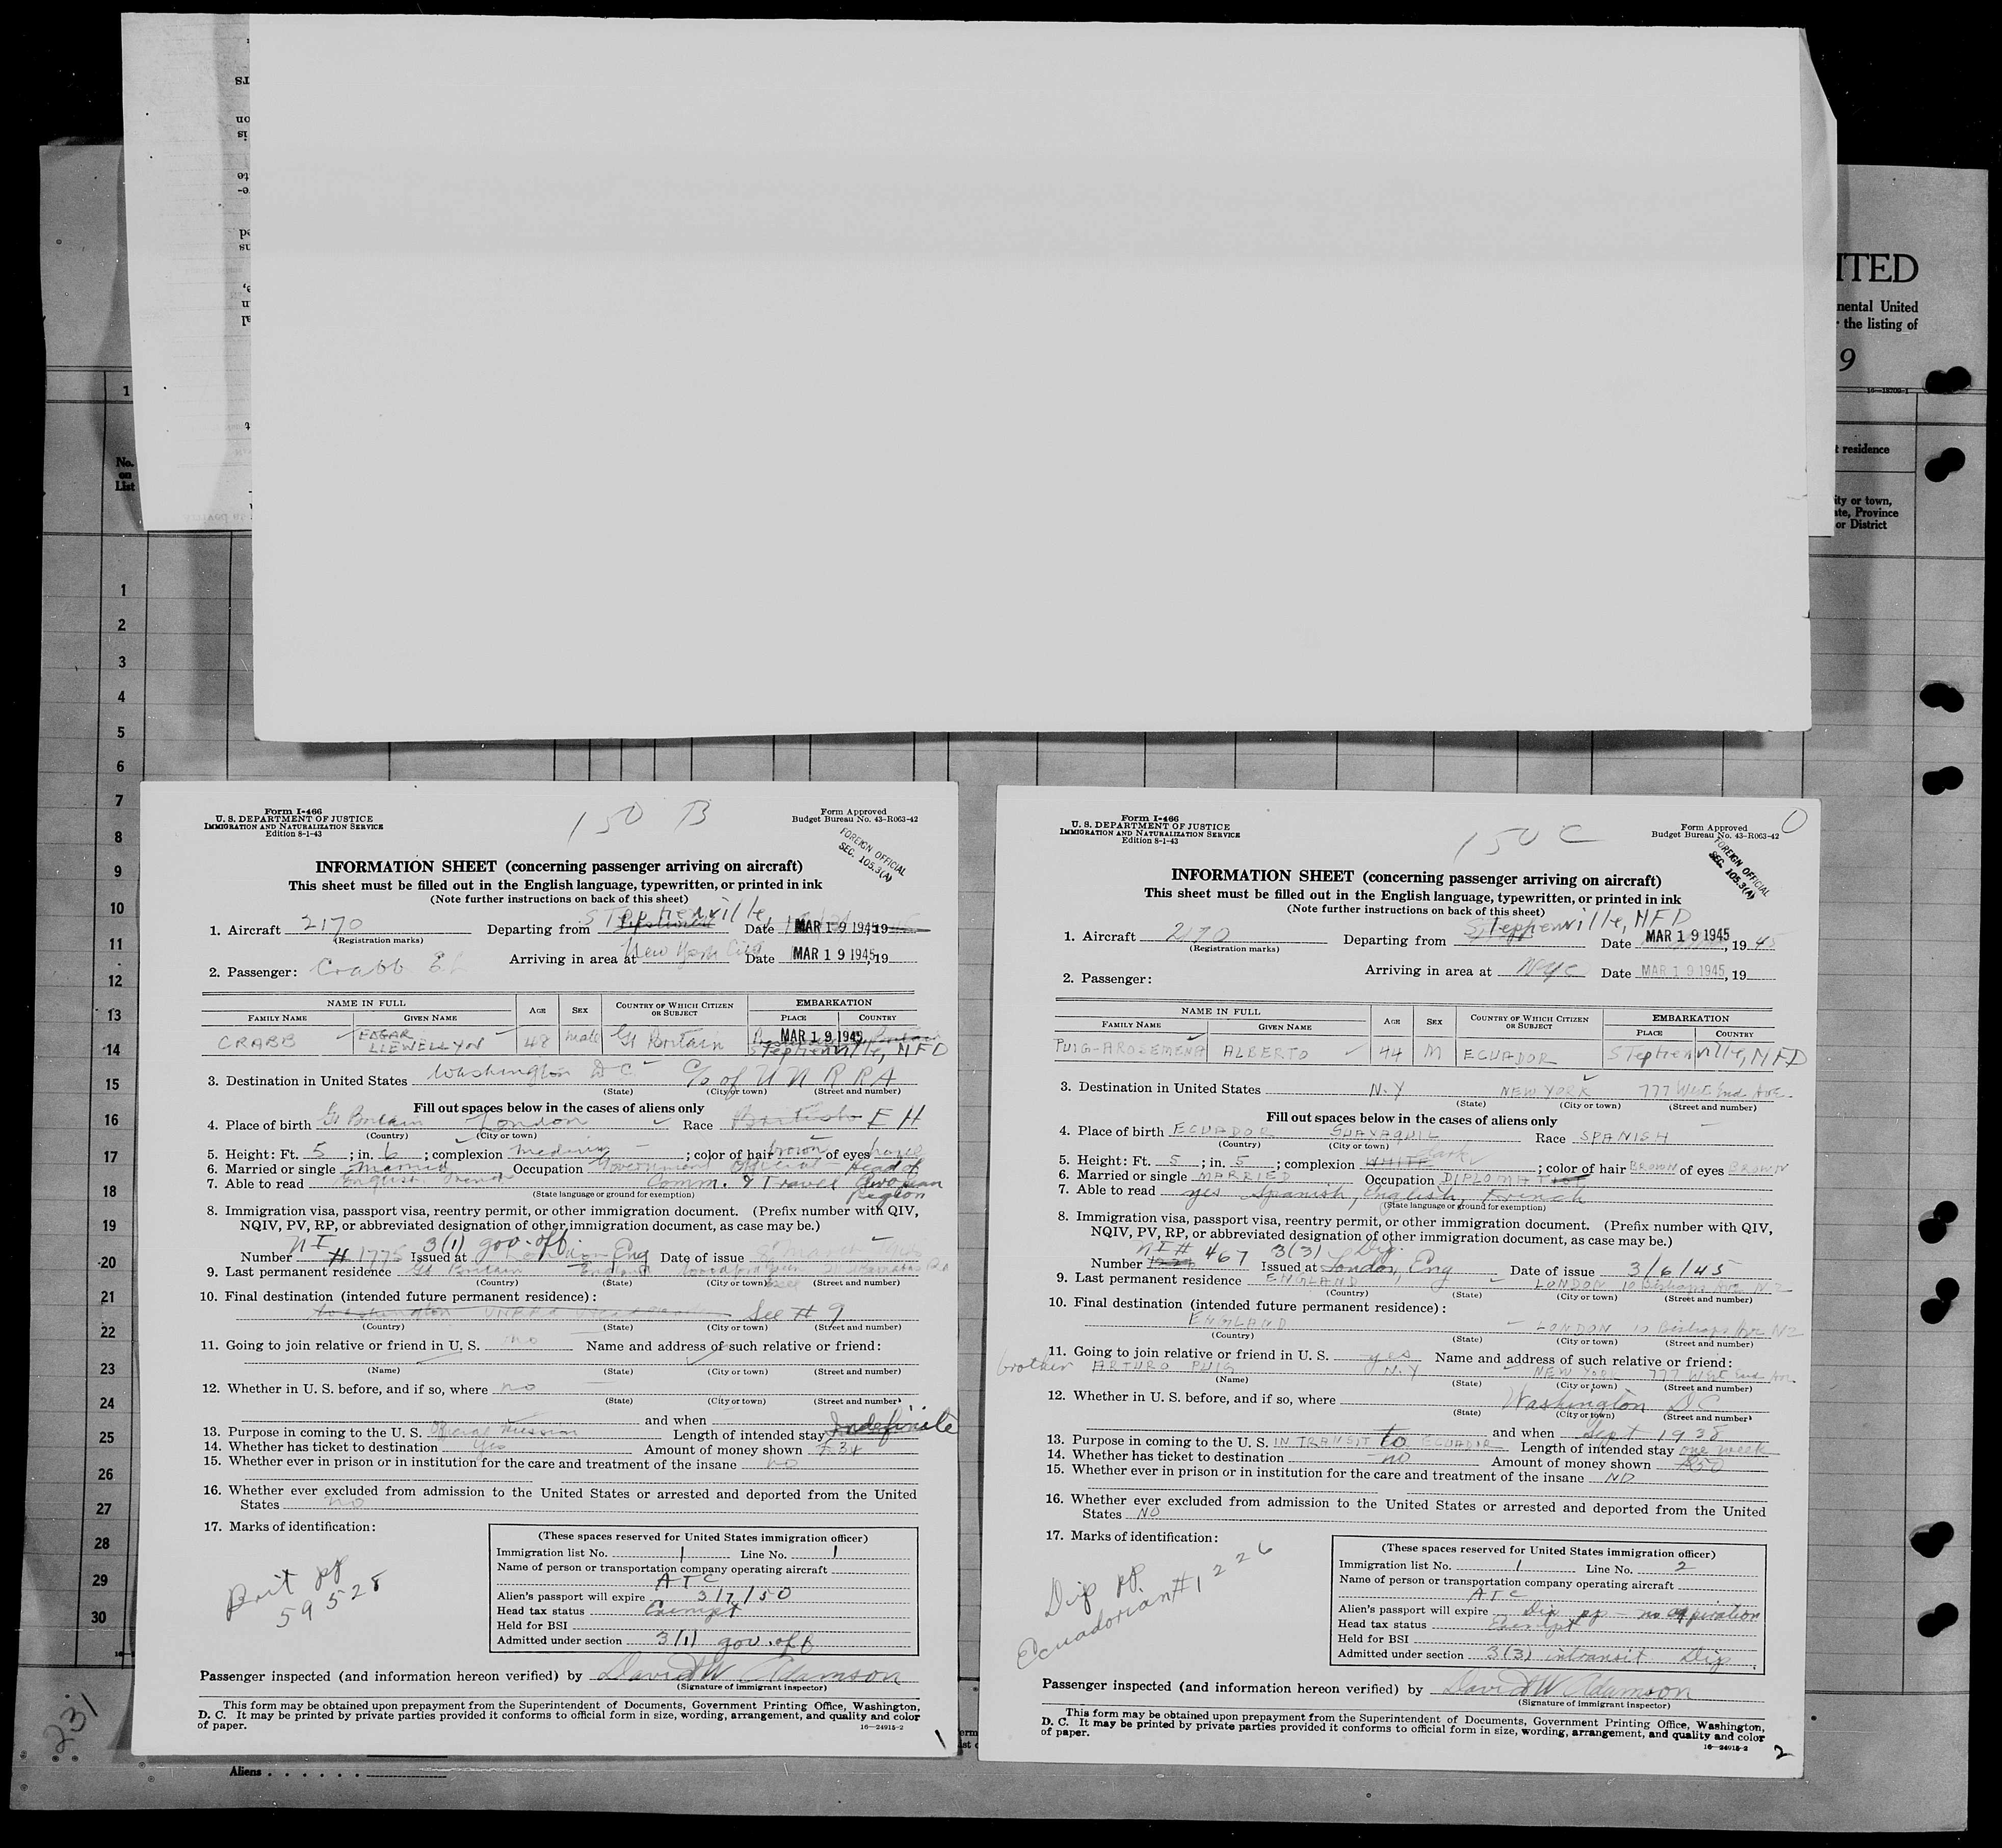 ITED
nental United
the listing of
9
residence
ity or town,
ate, Province
or District
No.
on
List
1
1
2
3
4
5
6
7
8
9
10
11
12
13
14
15
16
17
18
19
20
21
22
23
24
25
26
27
28
29
30
231
Aliens
Form I-466
U. S. DEPARTMENT OF JUSTICE
IMMIGRATION AND NATURALIZATION SERVICE
Edition 8-1-43
150 B
Form Approved
Budget Bureau No. 43-R063-42
FOREIGN OFFICIAL
SEC. 105.3(A)
INFORMATION SHEET (concerning passenger arriving on aircraft)
This sheet must be filled out in the English language, typewritten, or printed in ink
(Note further instructions on back of this sheet)
1. Aircraft 2170 Departing from Stephenville Date MAR 19 1945, 19
(Registration marks)
Arriving in area at New York City Date MAR 19 1945, 19
2. Passenger: Crabb E L
NAME IN FULL AGE SEX COUNTRY OF WHICH CITIZEN OR SUBJECT EMBARKATION
FAMILY NAME GIVEN NAME PLACE COUNTRY
CRABB EDGAR LLEWELLYN 48 Male Gt Britain MAR 19 1945 Stephenville, NFD
3. Destination in United States Washington D C C/o of U N R R A
(State) (City or town) (Street and number)
Fill out spaces below in the cases of aliens only
4. Place of birth Gt Britain London Race British E H
(Country) (City or town)
5. Height: Ft. 5; in. 6; complexion medium; color of hair brown of eyes hazel
6. Married or single Married Occupation Government Official - Head of
7. Able to read English French Comm. & Travel European Region
(State language or ground for exemption)
8. Immigration visa, passport visa, reentry permit, or other immigration document. (Prefix number with QIV,
NQIV, PV, RP, or abbreviated designation of other immigration document, as case may be.)
Number NI # 1775 3(1) gov. off. Issued at London Eng Date of issue
9. Last permanent residence Gt Britain England
(Country) (State) (City or town) (Street and number)
10. Final destination (intended future permanent residence):
Washington UNRRA See # 9
(Country) (State) (City or town) (Street and number)
11. Going to join relative or friend in U. S. no Name and address of such relative or friend:
(Name) (State) (City or town) (Street and number)
12. Whether in U. S. before, and if so, where no
(State) (City or town) (Street and number)
and when
13. Purpose in coming to the U. S. Official Mission Length of intended stay Indefinite
14. Whether has ticket to destination Yes Amount of money shown
15. Whether ever in prison or in institution for the care and treatment of the insane no
16. Whether ever excluded from admission to the United States or arrested and deported from the United
States no
17. Marks of identification:
Brit pp
59528
(These spaces reserved for United States immigration officer)
Immigration list No. 1 Line No. 1
Name of person or transportation company operating aircraft
ATC
Alien's passport will expire 3/7/50
Head tax status Exempt
Held for BSI
Admitted under section 3(1) gov. off
Passenger inspected (and information hereon verified) by David W Adamson
(Signature of immigrant inspector)
This form may be obtained upon prepayment from the Superintendent of Documents, Government Printing Office, Washington,
D. C. It may be printed by private parties provided it conforms to official form in size, wording, arrangement, and quality and color
of paper.
16—24915-2
1
Form I-466
U. S. DEPARTMENT OF JUSTICE
IMMIGRATION AND NATURALIZATION SERVICE
Edition 8-1-43
150 C
Form Approved
Budget Bureau No. 43-R063-42
FOREIGN OFFICIAL
SEC. 105.3(A)
INFORMATION SHEET (concerning passenger arriving on aircraft)
This sheet must be filled out in the English language, typewritten, or printed in ink
(Note further instructions on back of this sheet)
1. Aircraft 2170 Departing from Stephenville, NFD Date MAR 19 1945, 1945
(Registration marks)
Arriving in area at NYC Date MAR 19 1945, 19
2. Passenger:
NAME IN FULL AGE SEX COUNTRY OF WHICH CITIZEN OR SUBJECT EMBARKATION
FAMILY NAME GIVEN NAME PLACE COUNTRY
PUIG-AROSEMENA ALBERTO 44 M ECUADOR Stephenville, NFD
3. Destination in United States N.Y NEW YORK 777 West End Ave.
(State) (City or town) (Street and number)
Fill out spaces below in the cases of aliens only
4. Place of birth ECUADOR GUAYAQUIL Race SPANISH
(Country) (City or town)
5. Height: Ft. 5; in. 5; complexion WHITE dark; color of hair BROWN of eyes BROWN
6. Married or single MARRIED Occupation DIPLOMAT
7. Able to read yes Spanish, English, French
(State language or ground for exemption)
8. Immigration visa, passport visa, reentry permit, or other immigration document. (Prefix number with QIV,
NQIV, PV, RP, or abbreviated designation of other immigration document, as case may be.)
Number NI # 467 3(3) Dip. Issued at London, Eng Date of issue 3/6/45
9. Last permanent residence ENGLAND LONDON 10 Bishops Ave N2
(Country) (State) (City or town) (Street and number)
10. Final destination (intended future permanent residence):
ENGLAND LONDON 10 Bishops Ave N2
(Country) (State) (City or town) (Street and number)
11. Going to join relative or friend in U. S. yes Name and address of such relative or friend:
brother ARTURO PUIG N.Y NEW YORK 777 West End Ave
(Name) (State) (City or town) (Street and number)
12. Whether in U. S. before, and if so, where Washington DC
(State) (City or town) (Street and number)
and when Sept 1938
13. Purpose in coming to the U. S. IN TRANSIT to ECUADOR Length of intended stay one week
14. Whether has ticket to destination no Amount of money shown $50
15. Whether ever in prison or in institution for the care and treatment of the insane NO
16. Whether ever excluded from admission to the United States or arrested and deported from the United
States NO
17. Marks of identification:
Dip pp.
Ecuadorian #1226
(These spaces reserved for United States immigration officer)
Immigration list No. 1 Line No. 2
Name of person or transportation company operating aircraft
ATC
Alien's passport will expire Dip pp - no expiration
Head tax status Exempt
Held for BSI
Admitted under section 3(3) intransit Dip.
Passenger inspected (and information hereon verified) by David W Adamson
(Signature of immigrant inspector)
This form may be obtained upon prepayment from the Superintendent of Documents, Government Printing Office, Washington,
D. C. It may be printed by private parties provided it conforms to official form in size, wording, arrangement, and quality and color
of paper.
16—24915-2
2